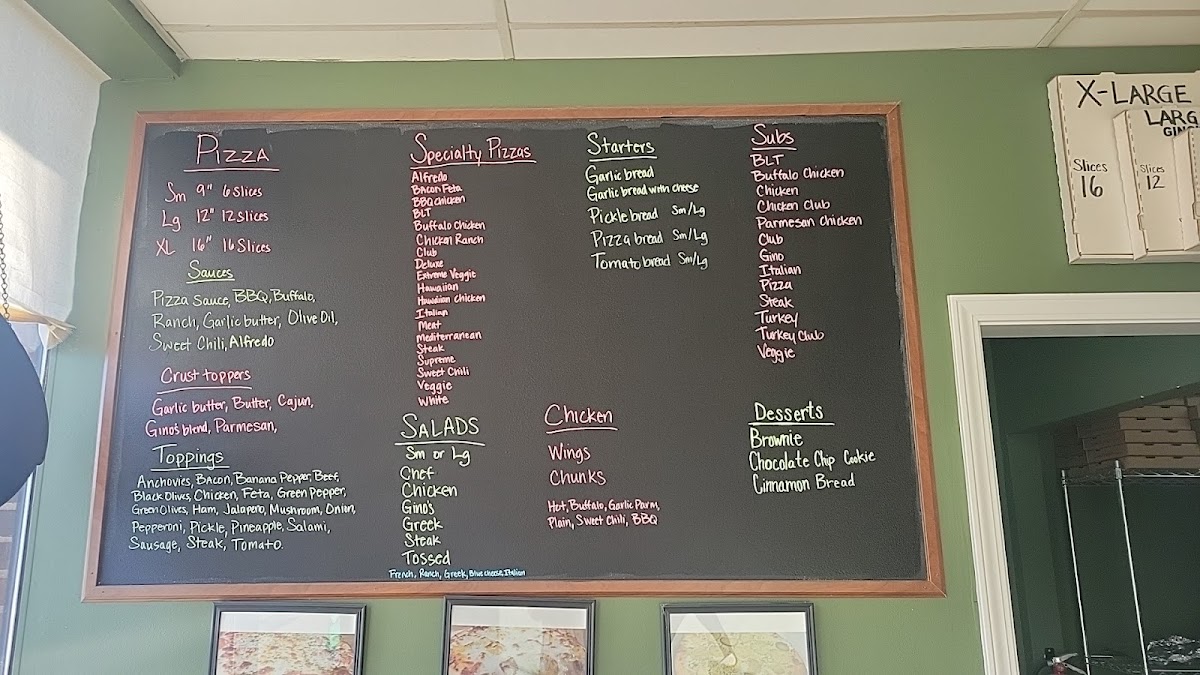 Pizza
Sm 9" 6 Slices
Lg 12" 12 slices
XL 16" 16 Slices
Sauces
Pizza Sauce, BBQ, Buffalo,
Ranch, Garlic butter, Olive Oil,
Sweet Chili, Alfredo
Crust toppers
Garlic butter, Butter, Cajun,
Gino's blend, Parmesan,
Toppings
Anchovies, Bacon, Banana Pepper, Beef,
Black Olives, Chicken, Feta, Green Pepper,
Green Olives, Ham, Jalapeno, Mushroom, Onion,
Pepperoni, Pickle, Pineapple, Salami,
Sausage, Steak, Tomato.
Specialty Pizzas
Alfredo
Bacon Feta
BBQ chicken
BLT
Buffalo Chicken
Chicken Ranch
Club
Deluxe
Extreme Veggie
Hawaiian
Hawaiian chicken
Italian
Meat
Mediterranean
Steak
Supreme
Sweet Chili
Veggie
White
SALADS
Sm or Lg
Chef
Chicken
Gino's
Greek
Steak
Tossed
French, Ranch, Greek, Blue cheese, Italian
Starters
Garlic bread
Garlic bread with cheese
Pickle bread Sm/Lg
Pizza bread Sm/Lg
Tomato bread Sm/Lg
Chicken
Wings
Chunks
Hot, Buffalo, Garlic Parm,
Plain, Sweet Chili, BBQ
Subs
BLT
Buffalo Chicken
Chicken
Chicken Club
Parmesan Chicken
Club
Gino
Italian
Pizza
Steak
Turkey
Turkey Club
Veggie
Desserts
Brownie
Chocolate Chip Cookie
Cinnamon Bread
X-LARGE
Slices
16
LARG
GIN
Slices
12